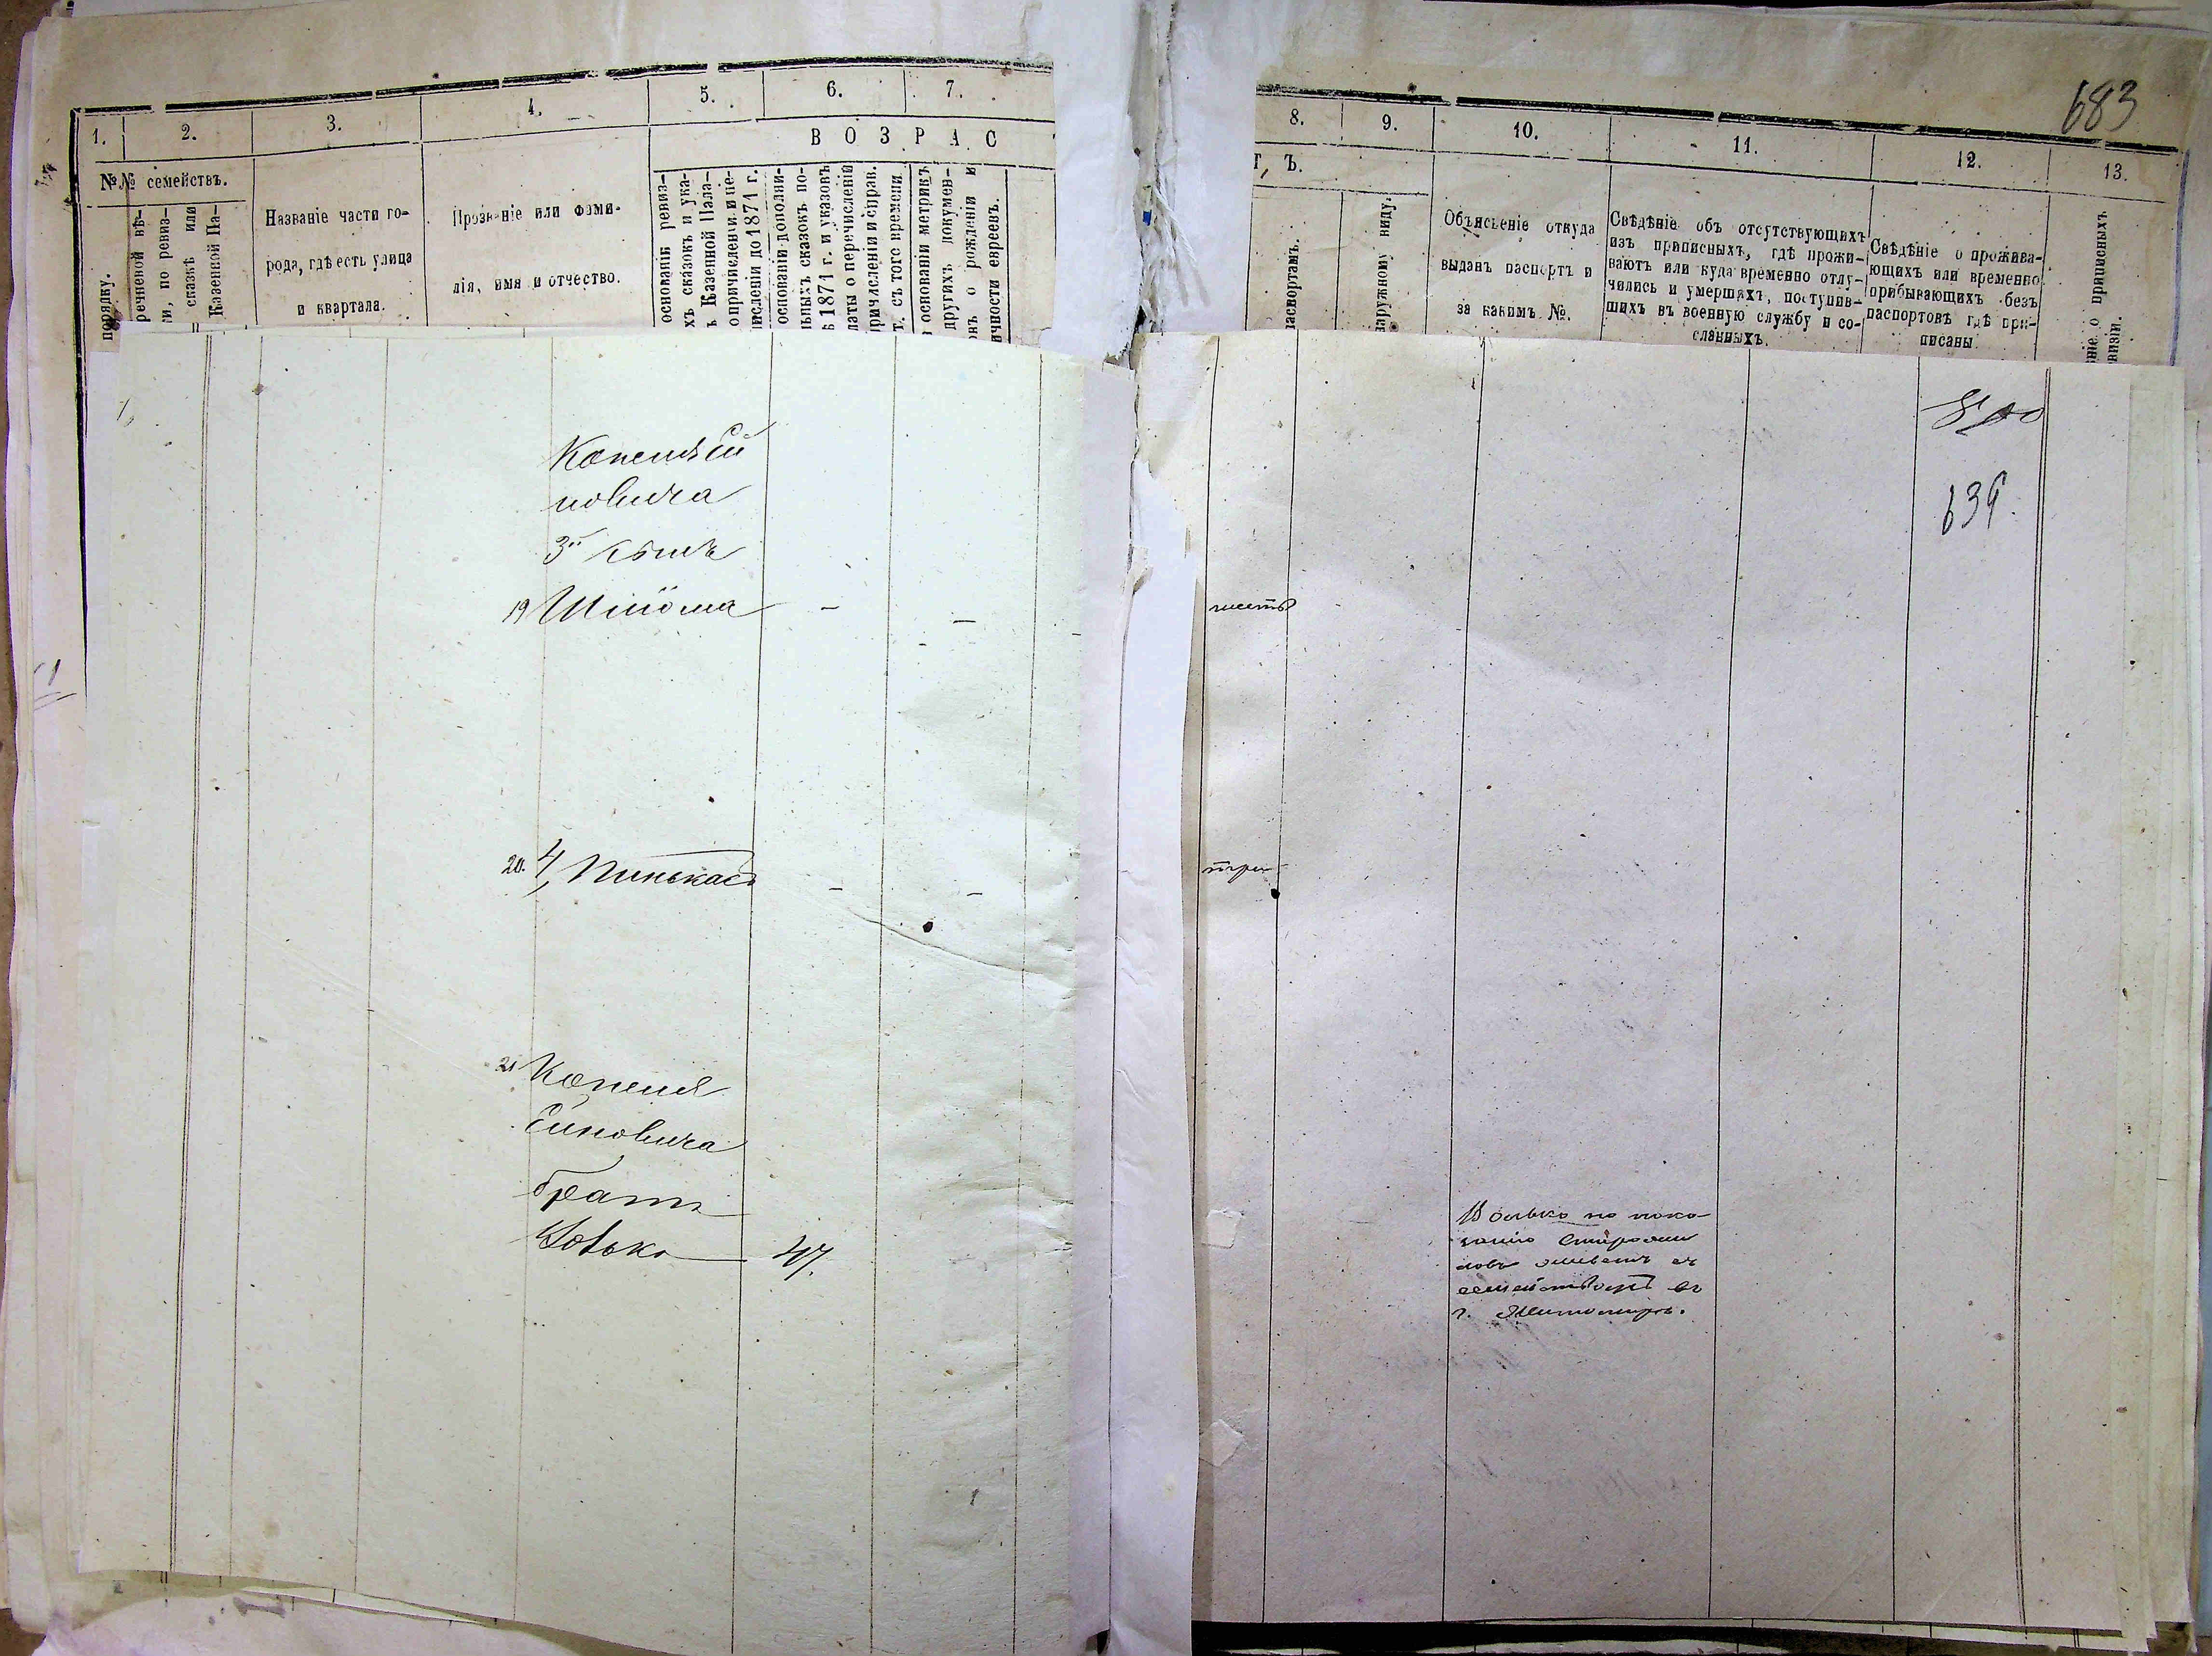 683
1. 2. 3. 4. 5. 6. 7.
ВОЗРАС
№№ семействъ.
порядку.
речневой вѣ-
ти, по ревиз-
сказкѣ или
Казенной Па-
Названіе части го-
рода, гдѣ есть улица
и квартала.
Прозваніе или фами-
лія, имя и отчество.
основаніи ревиз-
хъ сказокъ и ука-
ъ Казенной Пала-
о причисленіи и пе-
численіи до 1871 г.
основаніи дополни-
льныхъ сказокъ по-
ѣ 1871 г. и указовъ
латы о перечисленіи
ричисленіи и справ.
т. съ того времени
основаніи метрикъ
другихъ докумен-
овъ о рожденіи и
ичности евреевъ.
8. 9. 10. 11. 12. 13.
Т, Ъ.
паспортамъ.
наружному виду.
Объясненіе откуда
выданъ паспортъ и
за какимъ №.
Свѣдѣніе объ отсутствующихъ
изъ приписныхъ, гдѣ прожи-
ваютъ или куда временно отлу-
чились и умершихъ, поступив-
шихъ въ военную службу и со-
сланныхъ.
Свѣдѣніе о прожива-
ющихъ или временно
прибывающихъ безъ
паспортовъ гдѣ при-
писаны.
ніе о приписныхъ
визіи.
Копеля Си
новича
3й сынъ
19 Шліома - -
20. 4, Пинькасъ - -
21 Копеля
Синовича
братъ
47.
639.
шесть
три
по пока-
занію
живетъ съ
семействомъ въ
г. Житомирѣ.